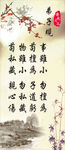 弟子規
事雖小 勿擅為
苟擅為 子道虧
物雖小 勿私藏
苟私藏 親心傷